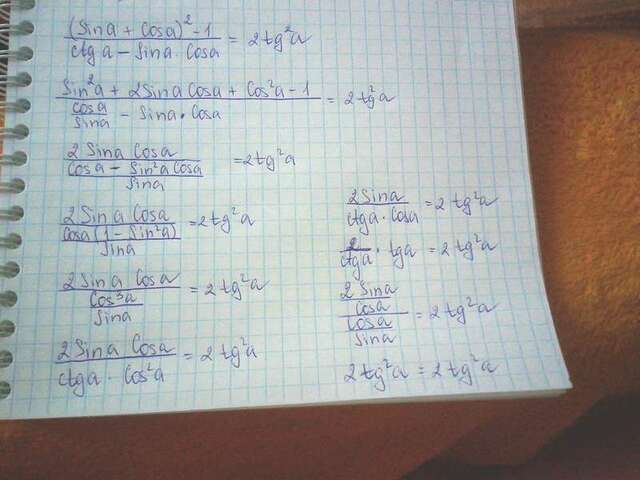 (Sina + Cosa)² - 1 / ctga - Sina · Cosa = 2tg²a
Sin²a + 2Sina Cosa + Cos²a - 1 / Cosa/Sina - Sina · Cosa = 2tg²a
2Sina Cosa / Cosa - Sin²a Cosa / Sina = 2tg²a
2Sina Cosa / Cosa(1 - Sin²a) / Sina = 2tg²a
2Sina Cosa / Cos³a / Sina = 2tg²a
2Sina Cosa / ctga · Cos²a = 2tg²a
2Sina / ctga · Cosa = 2tg²a
2 / ctga · tga = 2tg²a
2Sina / Cosa / Cosa / Sina = 2tg²a
2tg²a = 2tg²a